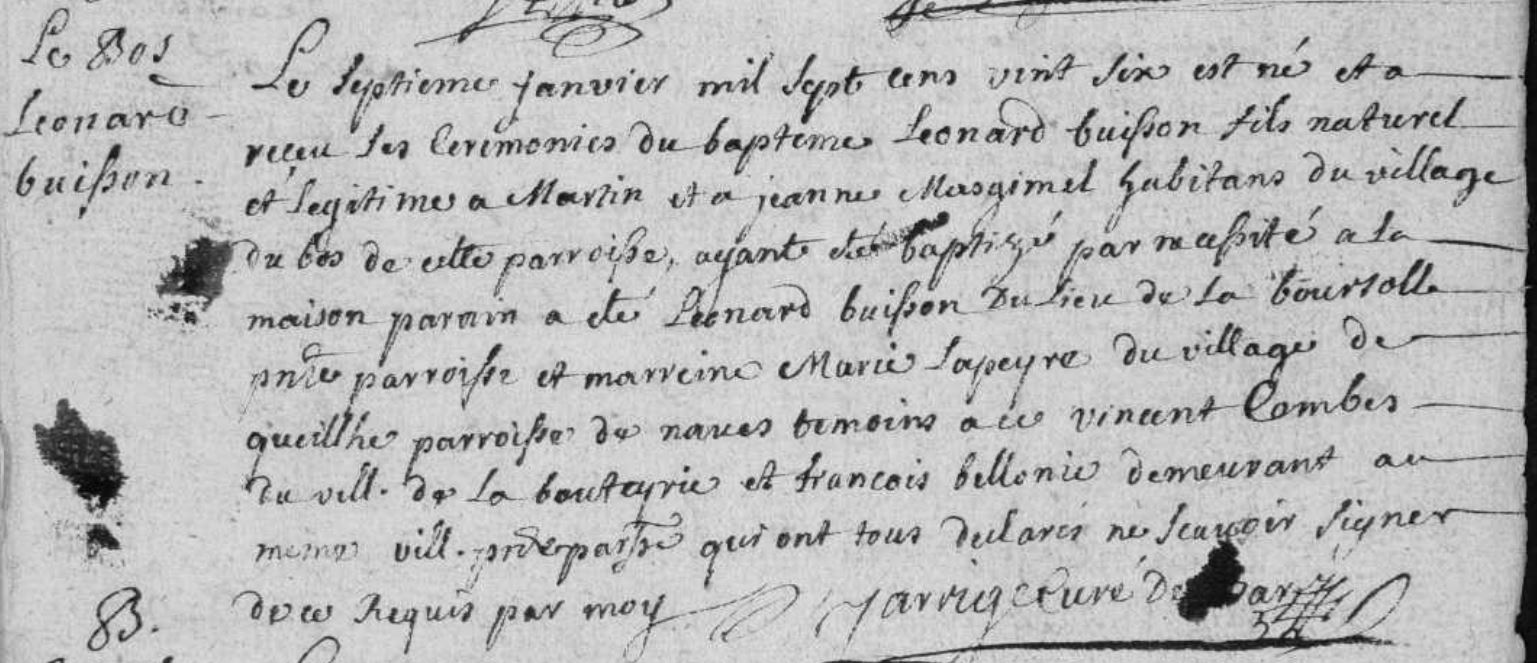 Le Bos
Leonard
buisson.
Le septieme janvier mil sept cens vint six est né et a
reçeu les Ceremonies du bapteme Leonard buisson fils naturel
et legitime a Martin et a jeanne Masgimel habitans du village
du bos de cette parroisse, ayant eté baptizé par necessité a la
maison parain a eté Leonard buisson du lieu de la boursolle
pnte parroisse et marreine Marie Lapeyre du village de
queillhe parroisse de naves temoins a ce vincent Combes
du vill. de la bouteyrie et francois bellonie demeurant au
meme vill. pnte parsse qui ont tous declarés ne scavoir signer
de ce Requis par moy
Jarrige Curé de
B.